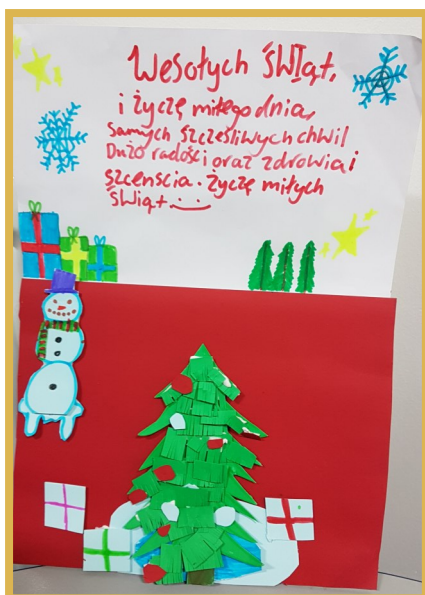 Wesołych ŚWIąt,
i życzę miłego dnia,
Samych szcześliwych chwil
Dużo radości oraz zdrowia i
szcenscia. życzę miłych
świąt